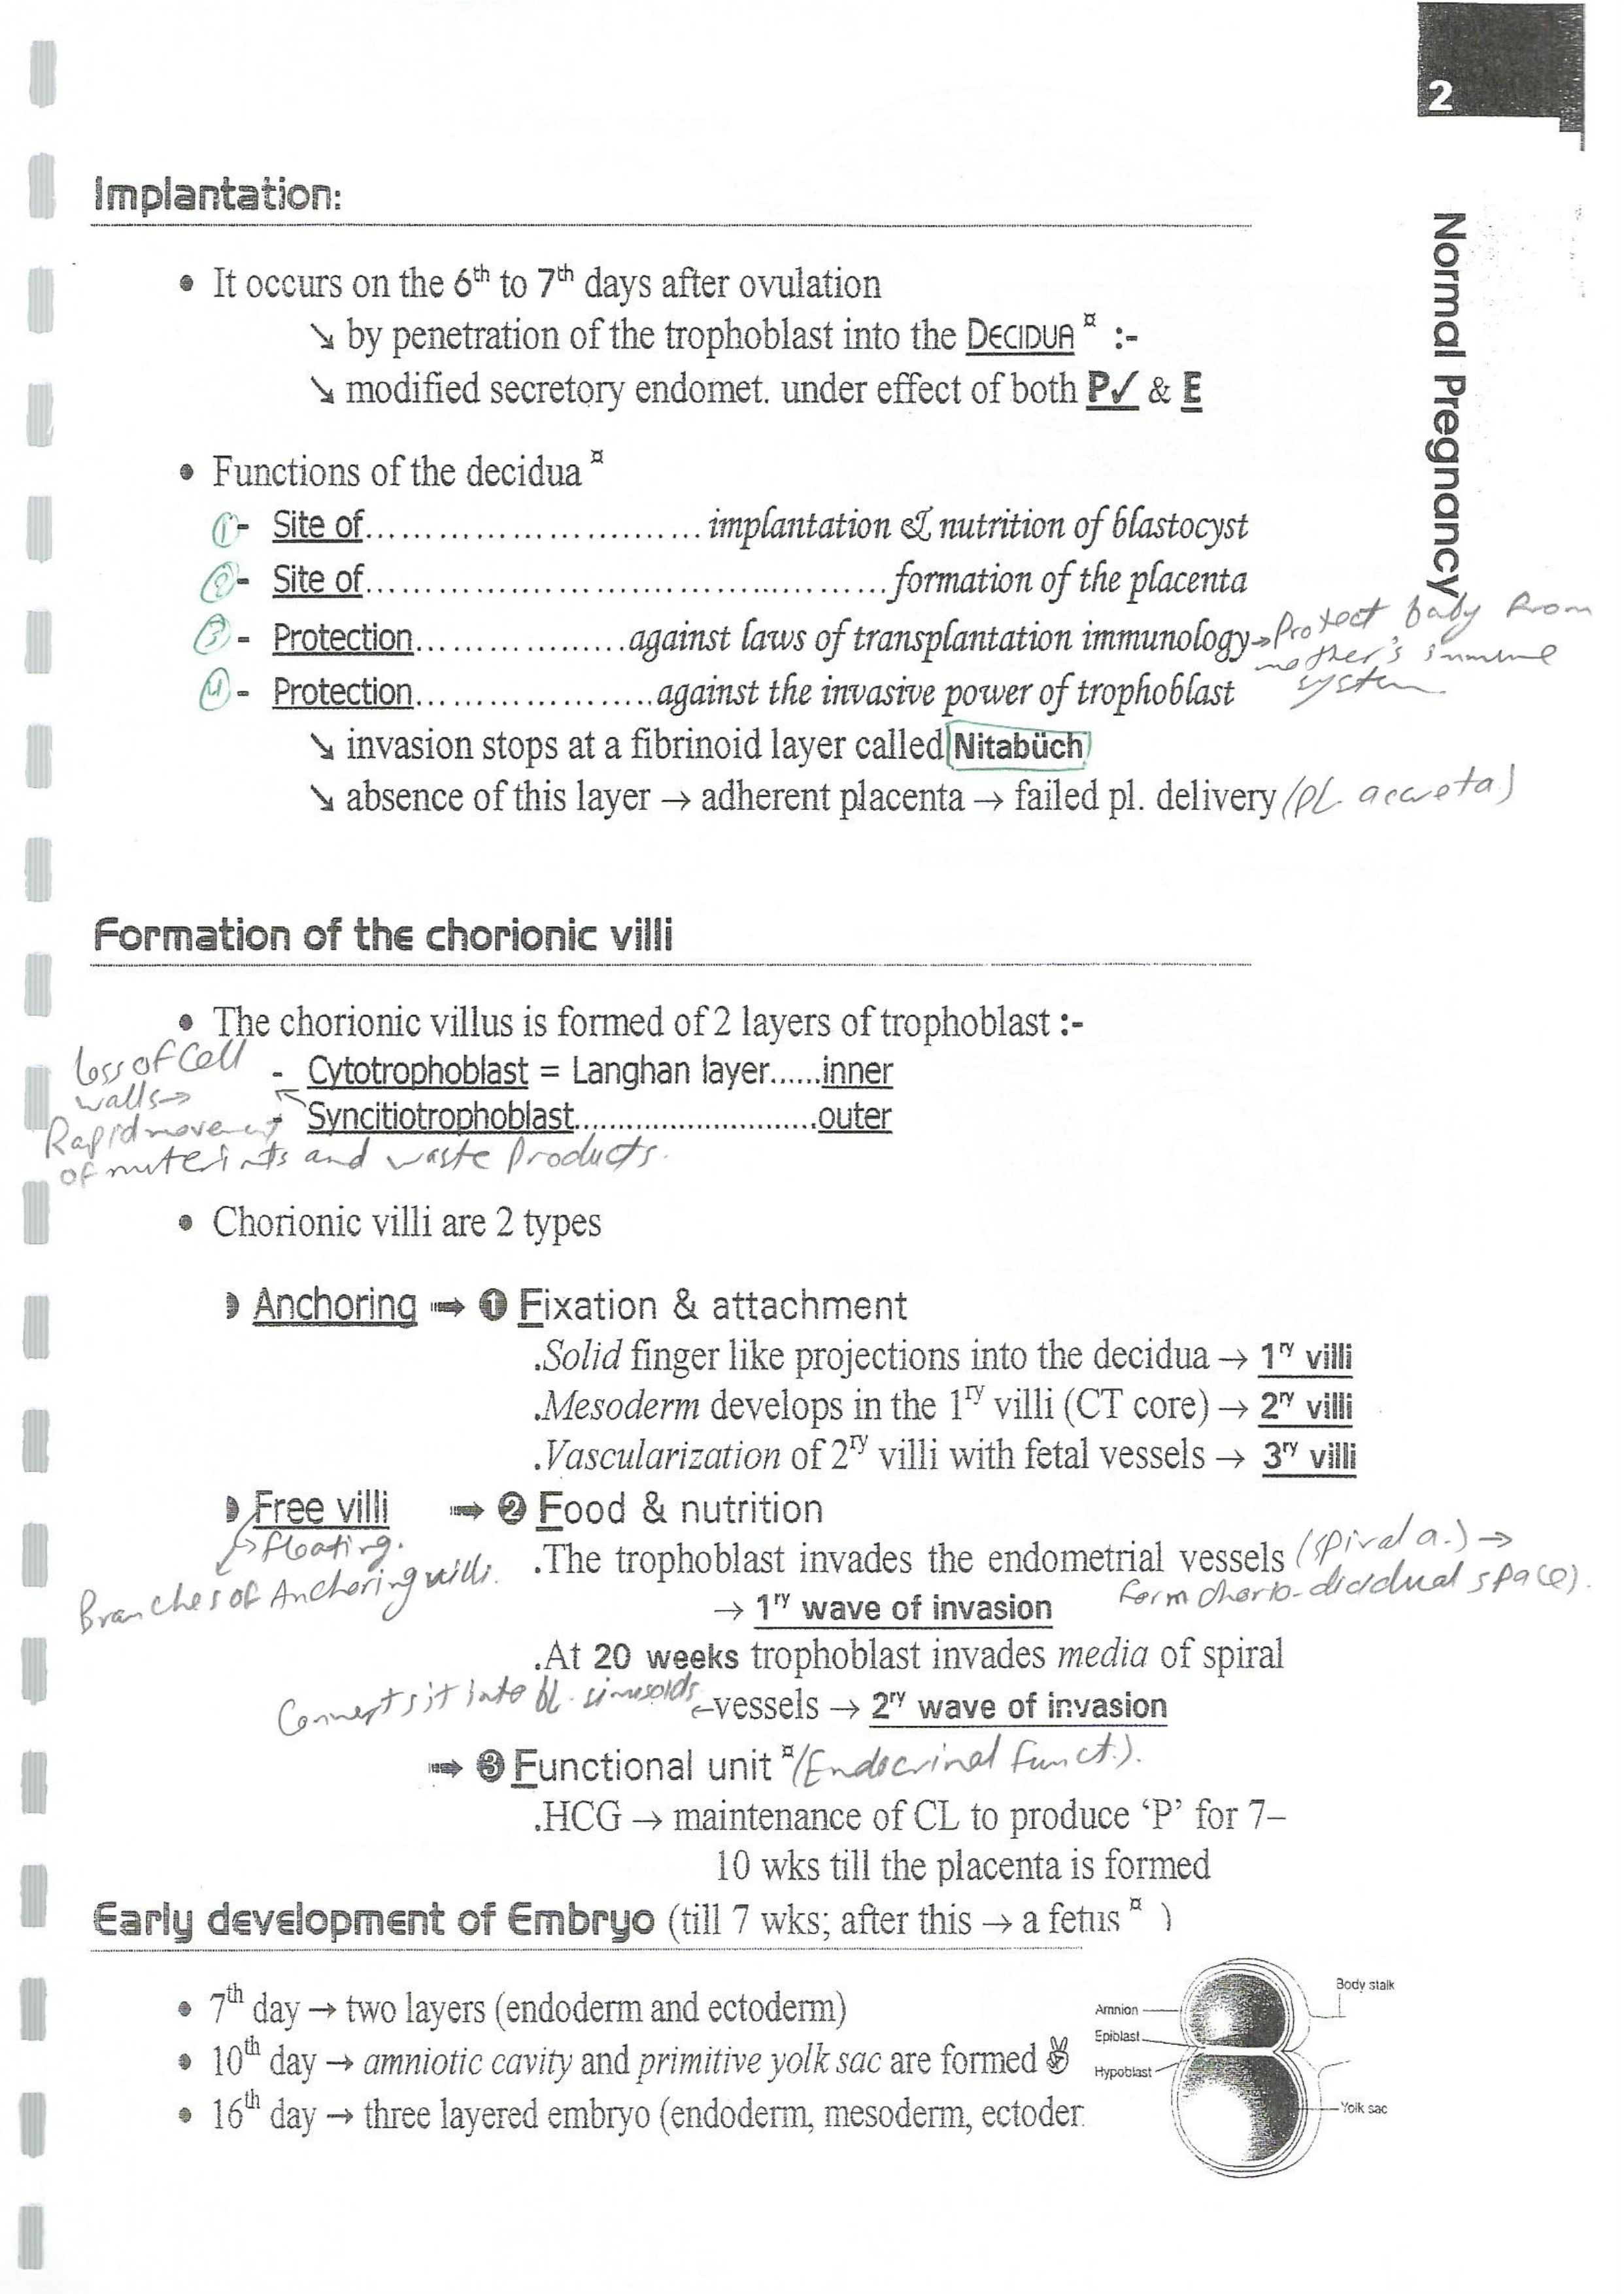 2
Normal Pregnancy
Implantation:
• It occurs on the 6th to 7th days after ovulation
↘ by penetration of the trophoblast into the DECIDUA ¤ :-
↘ modified secretory endomet. under effect of both P✓ & E
• Functions of the decidua ¤
1- Site of.............................implantation & nutrition of blastocyst
2- Site of.............................................formation of the placenta
3- Protection....................against laws of transplantation immunology → Protect baby from
mother's immune
system
4- Protection......................against the invasive power of trophoblast
↘ invasion stops at a fibrinoid layer called Nitabüch
↘ absence of this layer → adherent placenta → failed pl. delivery (pl. accreta)
Formation of the chorionic villi
• The chorionic villus is formed of 2 layers of trophoblast :-
- Cytotrophoblast = Langhan layer......inner
- Syncitiotrophoblast............................outer
Loss of cell
walls →
Rapid movement
of nuterients and waste Products.
• Chorionic villi are 2 types
Anchoring ➡ ❶ Fixation & attachment
.Solid finger like projections into the decidua → 1ry villi
.Mesoderm develops in the 1ry villi (CT core) → 2ry villi
.Vascularization of 2ry villi with fetal vessels → 3ry villi
Free villi ➡ ❷ Food & nutrition
→ floating.
Branches of Anchoring villi.
.The trophoblast invades the endometrial vessels (spiral a.) →
form chorio-dicidual space).
→ 1ry wave of invasion
.At 20 weeks trophoblast invades media of spiral
Converts it into bl. sinusoids ← vessels → 2ry wave of invasion
➡ ❸ Functional unit ¤ (Endocrinal funct.).
.HCG → maintenance of CL to produce ‘P’ for 7–
10 wks till the placenta is formed
Early development of Embryo (till 7 wks; after this → a fetus ¤ )
• 7th day → two layers (endoderm and ectoderm)
• 10th day → amniotic cavity and primitive yolk sac are formed ✌
• 16th day → three layered embryo (endoderm, mesoderm, ectoder
Body stalk
Amnion
Epiblast
Hypoblast
Yolk sac